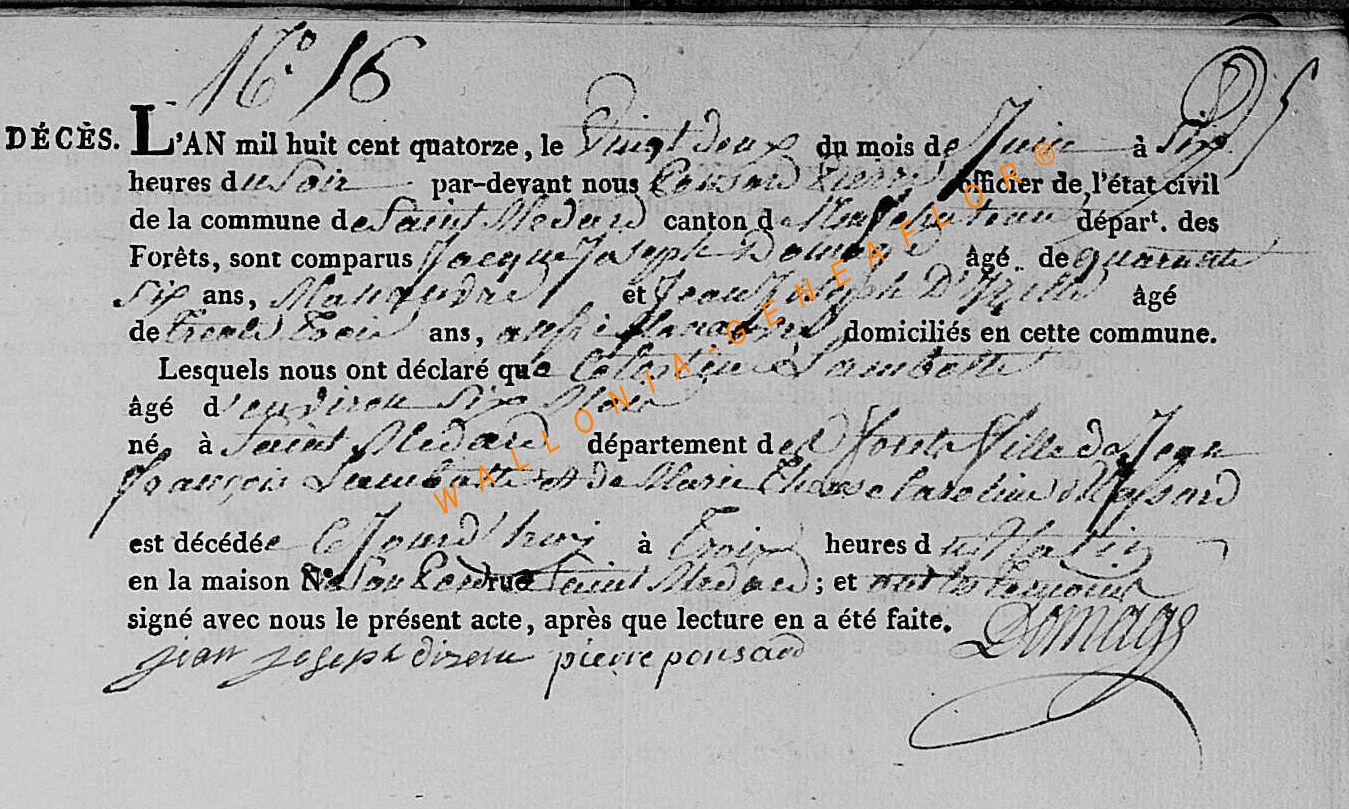 N.° 16
DÉCÈS. L'AN mil huit cent quatorze, le Vingt deux du mois de Juin à Six
heures du Soir par-devant nous Ponsard Pierre officier de l'état civil
de la commune de Saint Medard canton de Neufchateau départ. des
Forêts, sont comparus Jacque Joseph Domage âgé de quarante
Six ans, Manœuvre et Jean Joseph âgé
de trente trois ans, aussi domiciliés en cette commune.
Lesquels nous ont déclaré que Celestine Lambotte
âgé d'environ Six Mois
né à Saint Medard département des forets fille de Jean
François Lambotte et de Marie Therese Caroline
est décédée Ce Jourd'hui à Trois heures du Matin
en la maison N° rue Saint Medard ; et ont les temoins
signé avec nous le présent acte, après que lecture en a été faite. Domage
jean joseph dizene pierre ponsard
WALLONIA-GENEAFLOR®